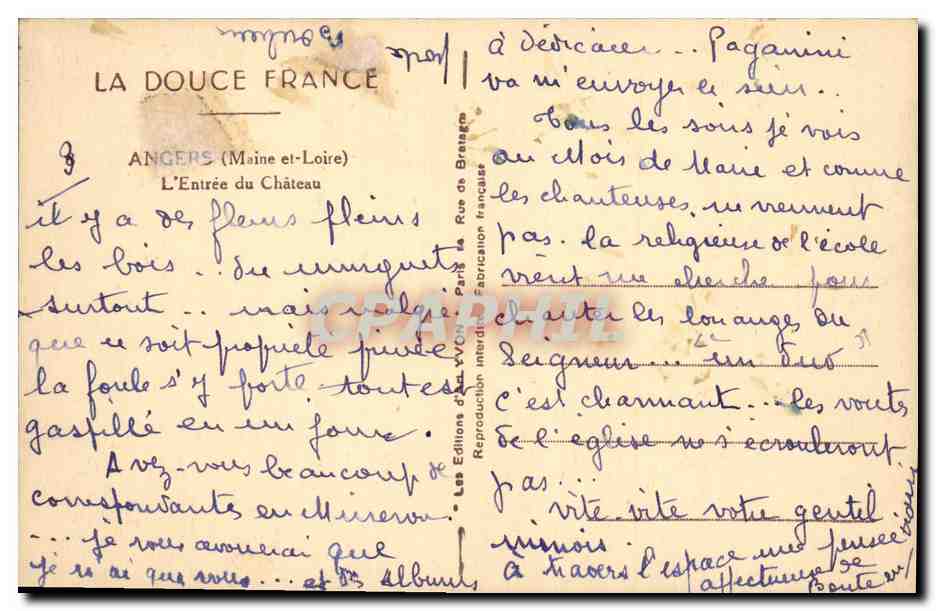 LA DOUCE FRANCE
ANGERS (Maine-et-Loire)
L'Entrée du Château
3
il y a des fleurs pleins
les bois.. du muguets
surtout.. mais malgré
que ce soit propriété privée
la foule s'y porte tout est
gaspillé en un jour.
Avez-vous beaucoup de
correspondantes en
... je vous avouerai que
je n'ai que vous... et des Albums
Les Editions d'Art YVON Paris Rue de Bretagne
Reproduction interdite Fabrication française
CPAPHIL
à dédicacer... Paganini
va m'envoyer le sien..
Tous les soirs je vais
au Mois de Marie et comme
les chanteuses ne viennent
pas. la religieuse de l'école
vient me cherche pour
chanter les louanges du
Seigneur... un duo
c'est charmant... les voutes
de l'église ne s'écrouleront
pas...
vite vite votre gentil
minois.
à travers l'espace une pensée
affectueuse de